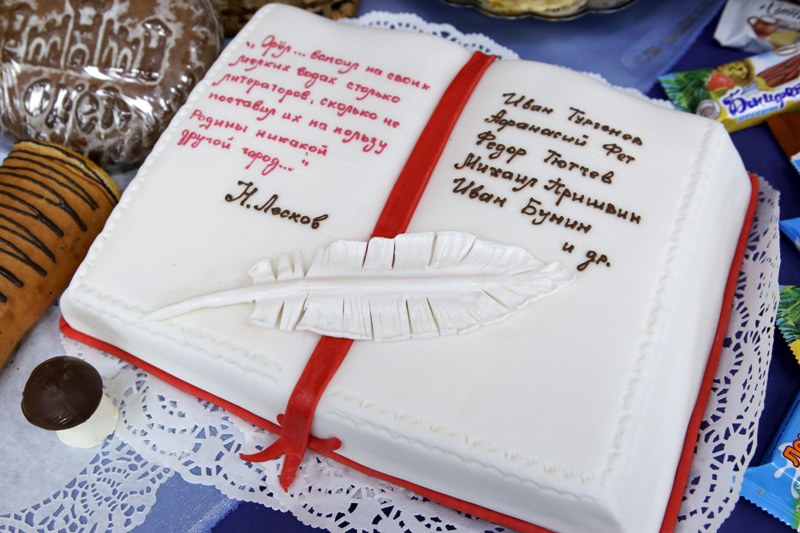 "Орёл... вспоил на своих
мелких водах столько
литераторов, сколько не
поставил их на пользу
Родины никакой
другой город..."
Н. Лесков
Иван Тургенев
Афанасий Фет
Федор Тютчев
Михаил Пришвин
Иван Бунин
и др.